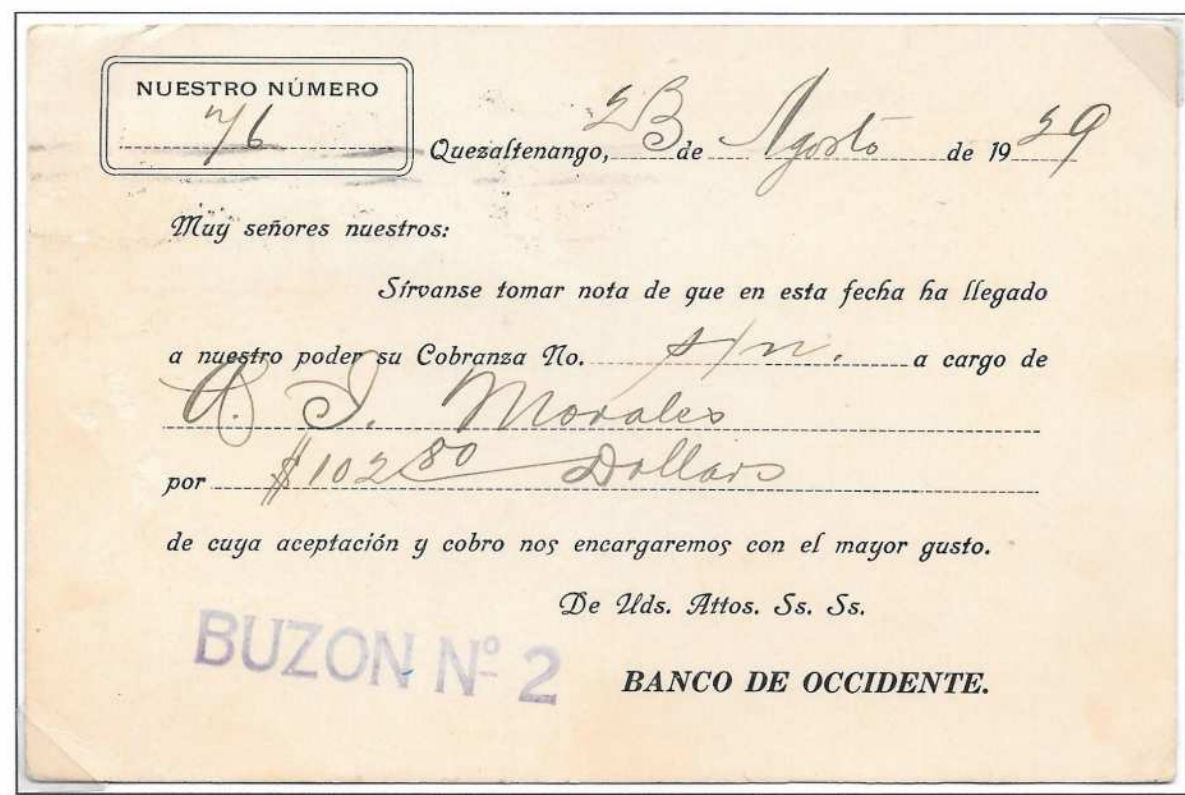 NUESTRO NÚMERO
76
Quezaltenango, 23 de Agosto de 1929
Muy señores nuestros:
Sírvanse tomar nota de que en esta fecha ha llegado
a nuestro poder su Cobranza No. s/n. a cargo de
A. Morales
por $102 80 Dollars
de cuya aceptación y cobro nos encargaremos con el mayor gusto.
De Uds. Attos. Ss. Ss.
BUZON Nº 2
BANCO DE OCCIDENTE.